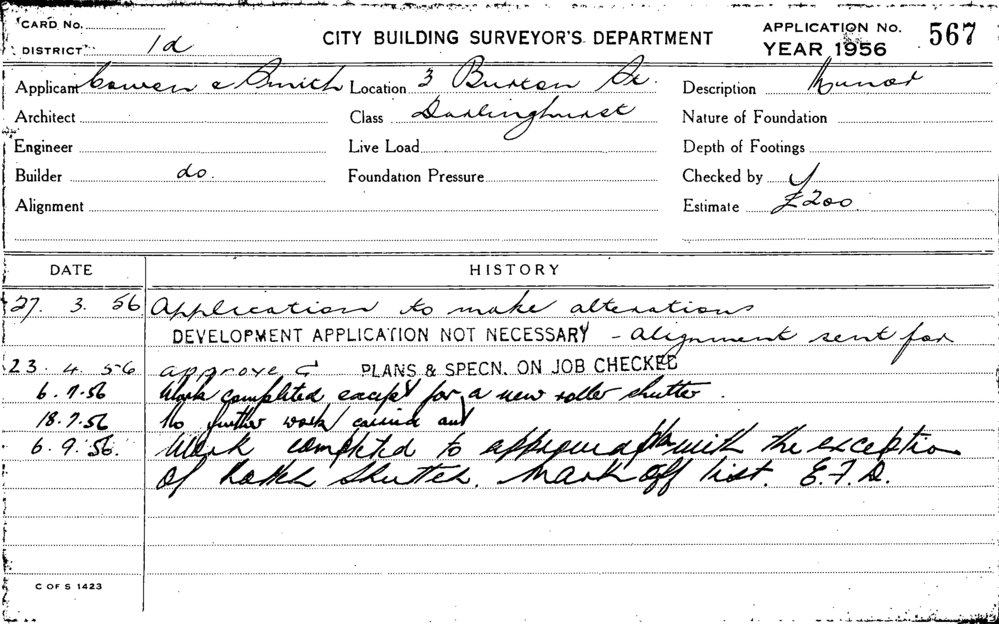 CARD NO.
DISTRICT 1d
CITY BUILDING SURVEYOR'S DEPARTMENT
APPLICATION NO. 567
YEAR 1956
Applicant Cowen & Smith Location 3 Burton St. Description Minor
Architect Class Darlinghurst Nature of Foundation
Engineer Live Load Depth of Footings
Builder do. Foundation Pressure Checked by
Alignment Estimate £200
DATE HISTORY
27. 3. 56 Application to make alterations
DEVELOPMENT APPLICATION NOT NECESSARY - alignment sent for
23. 4. 56 approved PLANS & SPECN. ON JOB CHECKED
6. 7. 56 Work completed except for a new roller shutter.
18. 7. 56 No further work carried out
6. 9. 56. Work completed to approved with the exception
of roller shutter. Mark off list. E.F.D.
C OF S 1423